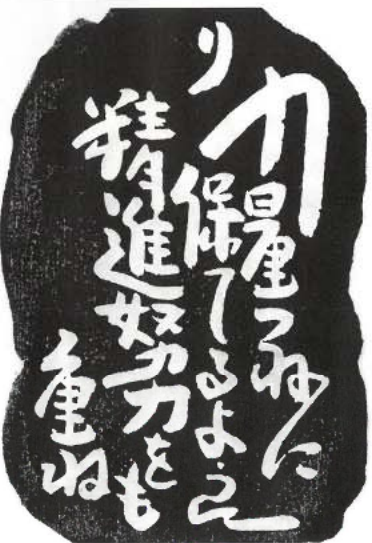 力量つねに
り保てるよう
精進努力をも
重ね